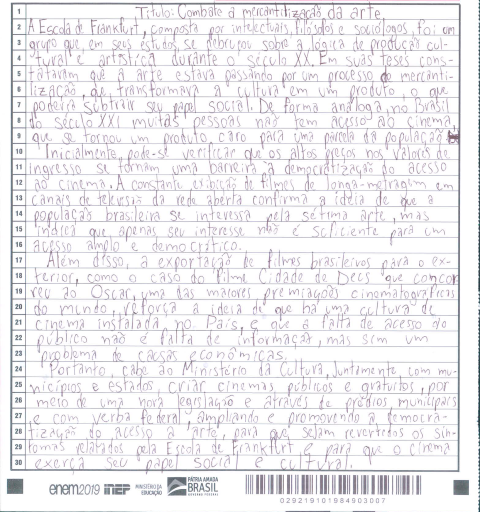 1 Título: Combate à mercantilização da arte
2 A Escola de Frankfurt, composta por intelectuais, filósofos e sociólogos, foi um
3 grupo que, em seus estudos, se debruçou sobre a lógica de produção cul-
4 tural e artística durante o século XX. Em suas teses cons-
5 tataram que a arte estava passando por um processo de mercanti-
6 lização, que transformava a cultura em um produto, o que
7 poderia subtrair seu papel social. De forma análoga, no Brasil
8 do século XXI muitas pessoas não tem acesso ao cinema,
9 que se tornou um produto caro para uma parcela da população
10 Inicialmente, pode-se verificar que os altos preços nos valores de
11 ingresso se tornam uma barreira à democratização do acesso
12 ao cinema. A constante exibição de filmes de longa-metragem em
13 canais de televisão da rede aberta confirma a ideia de que a
14 população brasileira se interessa pela sétima arte, mas
15 indica que apenas seu interesse não é suficiente para um
16 acesso amplo e democrático.
17 Além disso, a exportação de filmes brasileiros para o ex-
18 terior, como o caso do filme Cidade de Deus que concor
19 reu ao Oscar, uma das maiores premiações cinematográficas
20 do mundo, reforça a ideia de que há uma cultura de
21 cinema instalada no País, e que a falta de acesso do
22 público não é falta de informação, mas sim um
23 problema de causas econômicas.
24 Portanto, cabe ao Ministério da Cultura, juntamente com mu-
25 nicípios e estados, criar cinemas públicos e gratuitos, por
26 meio de uma nova legislação e através de prédios municipais
27 e com verba federal, ampliando e promovendo a democra-
28 tização do acesso a arte, para que sejam revertidos os sin-
29 tomas relatados pela Escola de Frankfurt e para que o cinema
30 exerça seu papel social e cultural.
enem2019 INEP MINISTÉRIO DA EDUCAÇÃO PÁTRIA AMADA BRASIL GOVERNO FEDERAL
029219101984903007